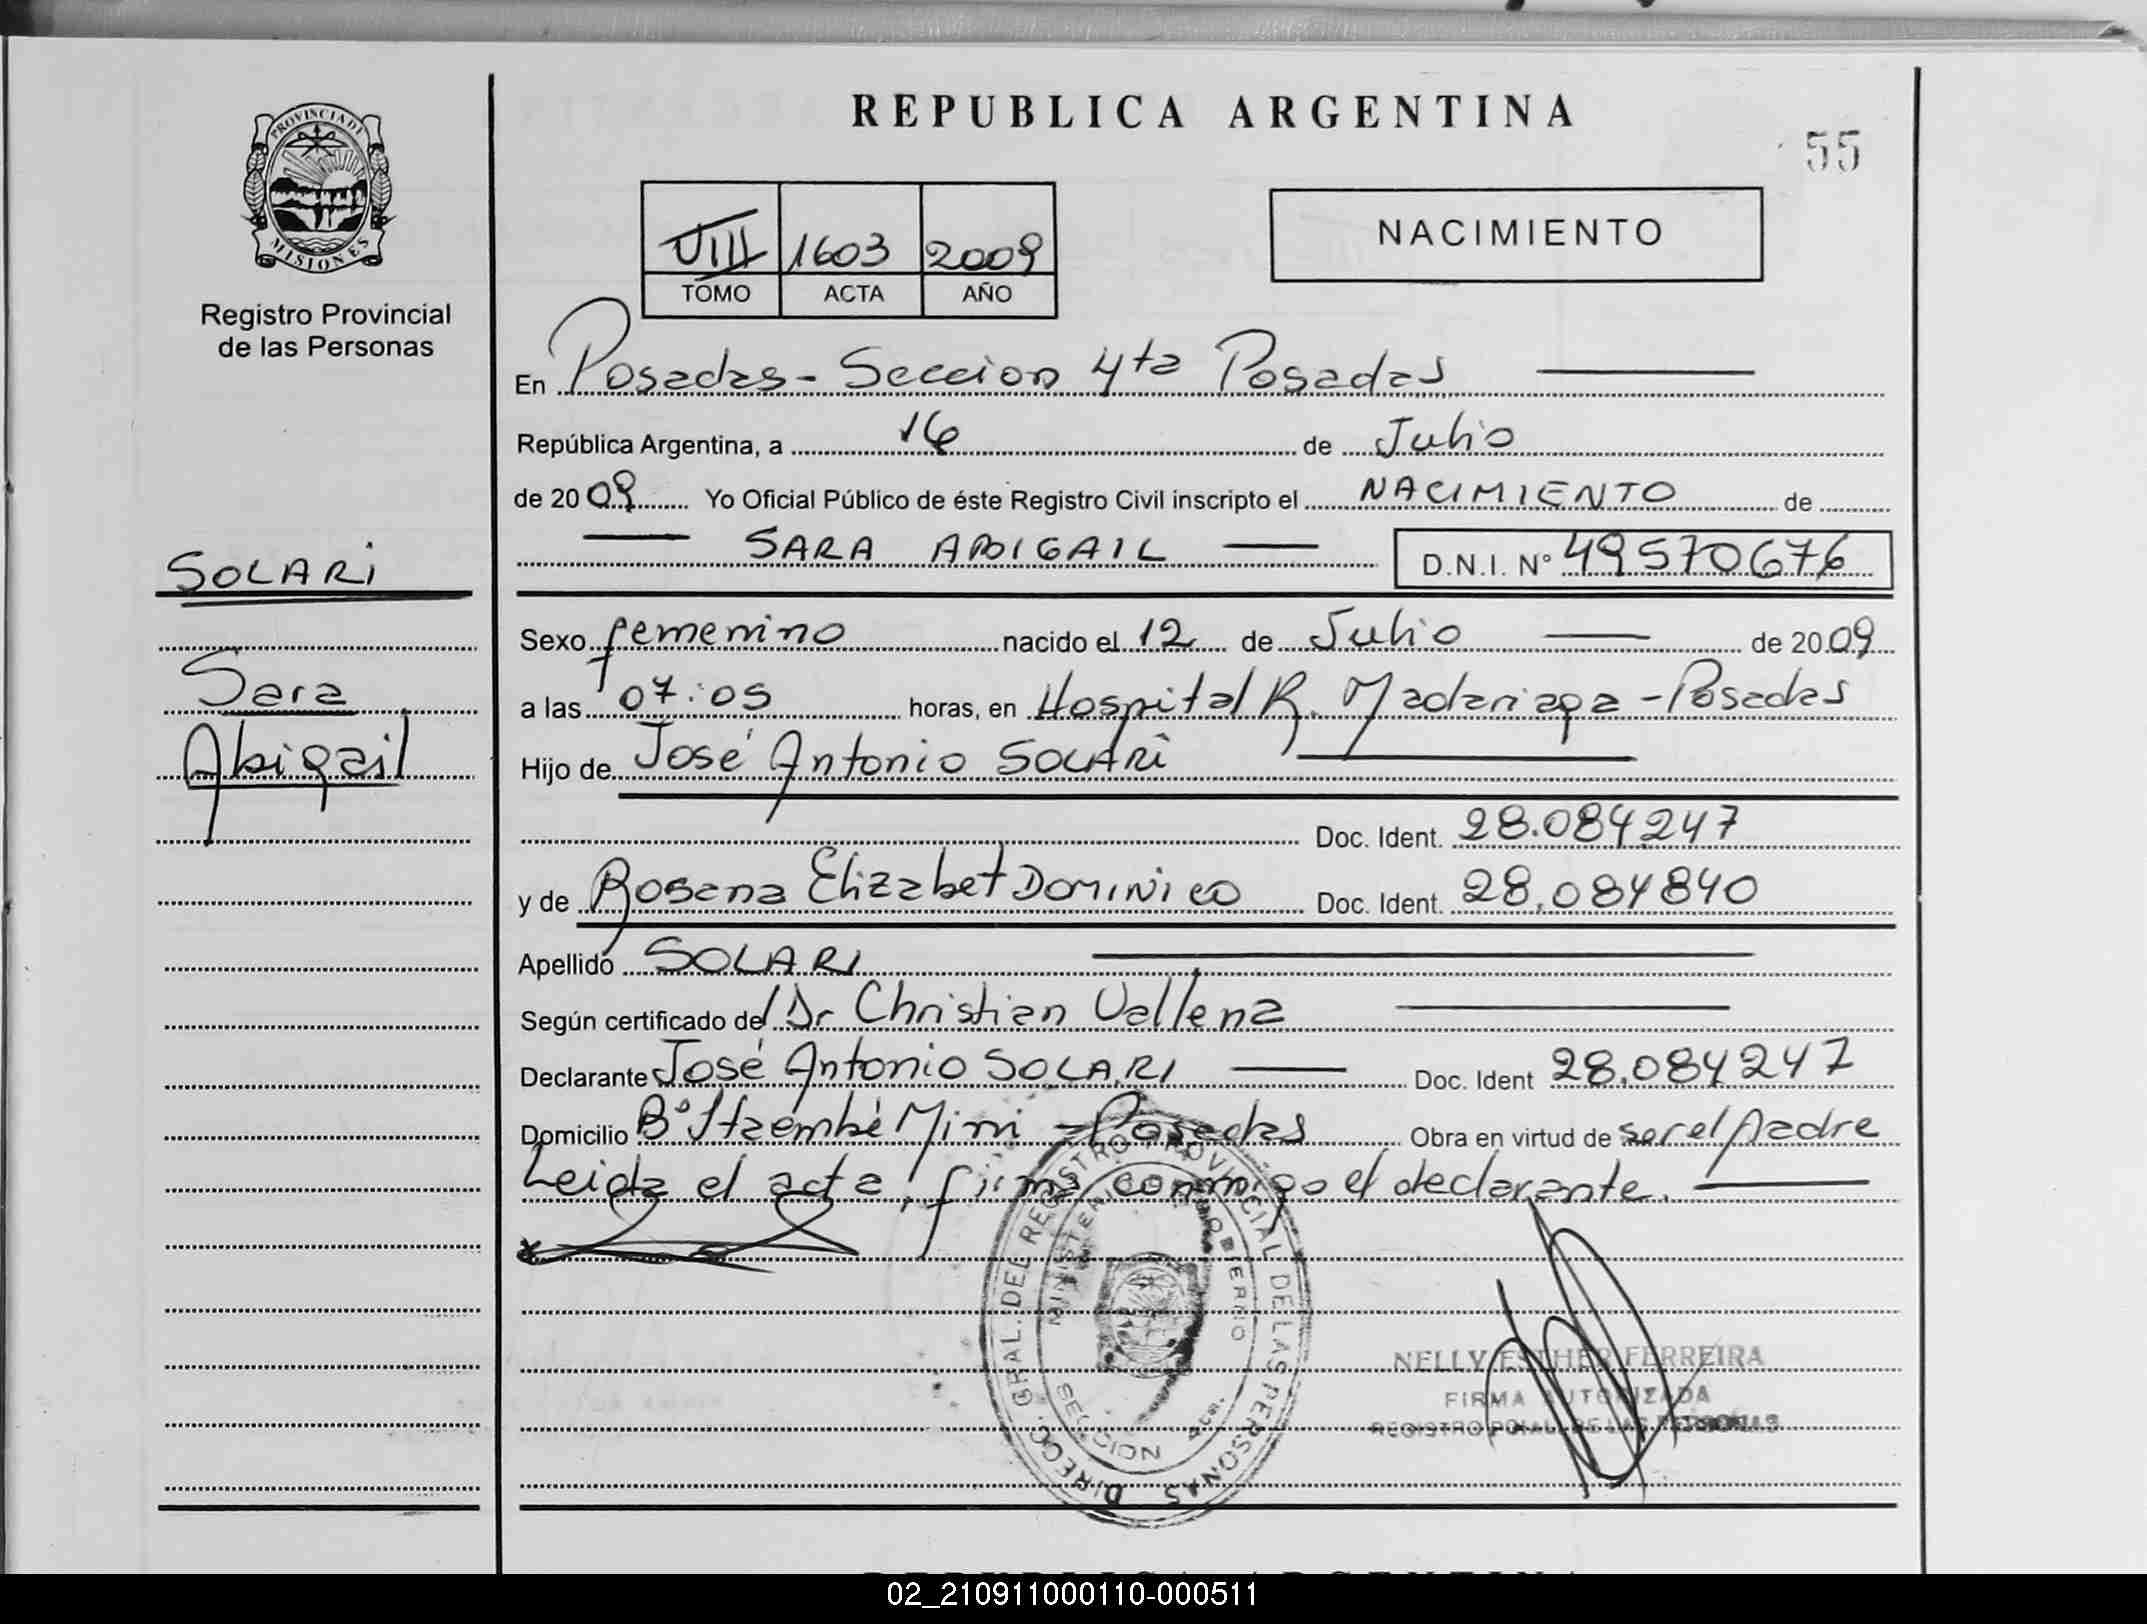 REPUBLICA ARGENTINA
55
PROVINCIA DE
MISIONES
Registro Provincial
de las Personas
VIII 1603 2009
TOMO ACTA AÑO
NACIMIENTO
En Posadas - Seccion 4ta Posadas
República Argentina, a 16 de Julio
de 20 09 Yo Oficial Público de éste Registro Civil inscripto el NACIMIENTO de
SARA ABIGAIL D.N.I. N° 49570676
SOLARI
Sara
Abigail
Sexo femenino nacido el 12 de Julio de 20 09
a las 07:05 horas, en Hospital R. Madariaga - Posadas
Hijo de José Antonio SOLARI
Doc. Ident. 28.084247
y de Rosana Elizabet DOMINICO Doc. Ident. 28.084840
Apellido SOLARI
Según certificado del Dr Christian Vallena
Declarante José Antonio SOLARI Doc. Ident 28.084247
Domicilio B° Itaembé Mini - Posadas Obra en virtud de ser el Padre
Leida el acta, firma conmigo el declarante.
DIRECC. GRAL. DEL REGISTRO PROVINCIAL DE LAS PERSONAS
MINISTERIO DE GOBIERNO
SECCION 4ta.
NELLY ESTHER FERREIRA
FIRMA AUTORIZADA
REGISTRO PCIAL. DE LAS PERSONAS
REPUBLICA ARGENTINA
02_210911000110-000511